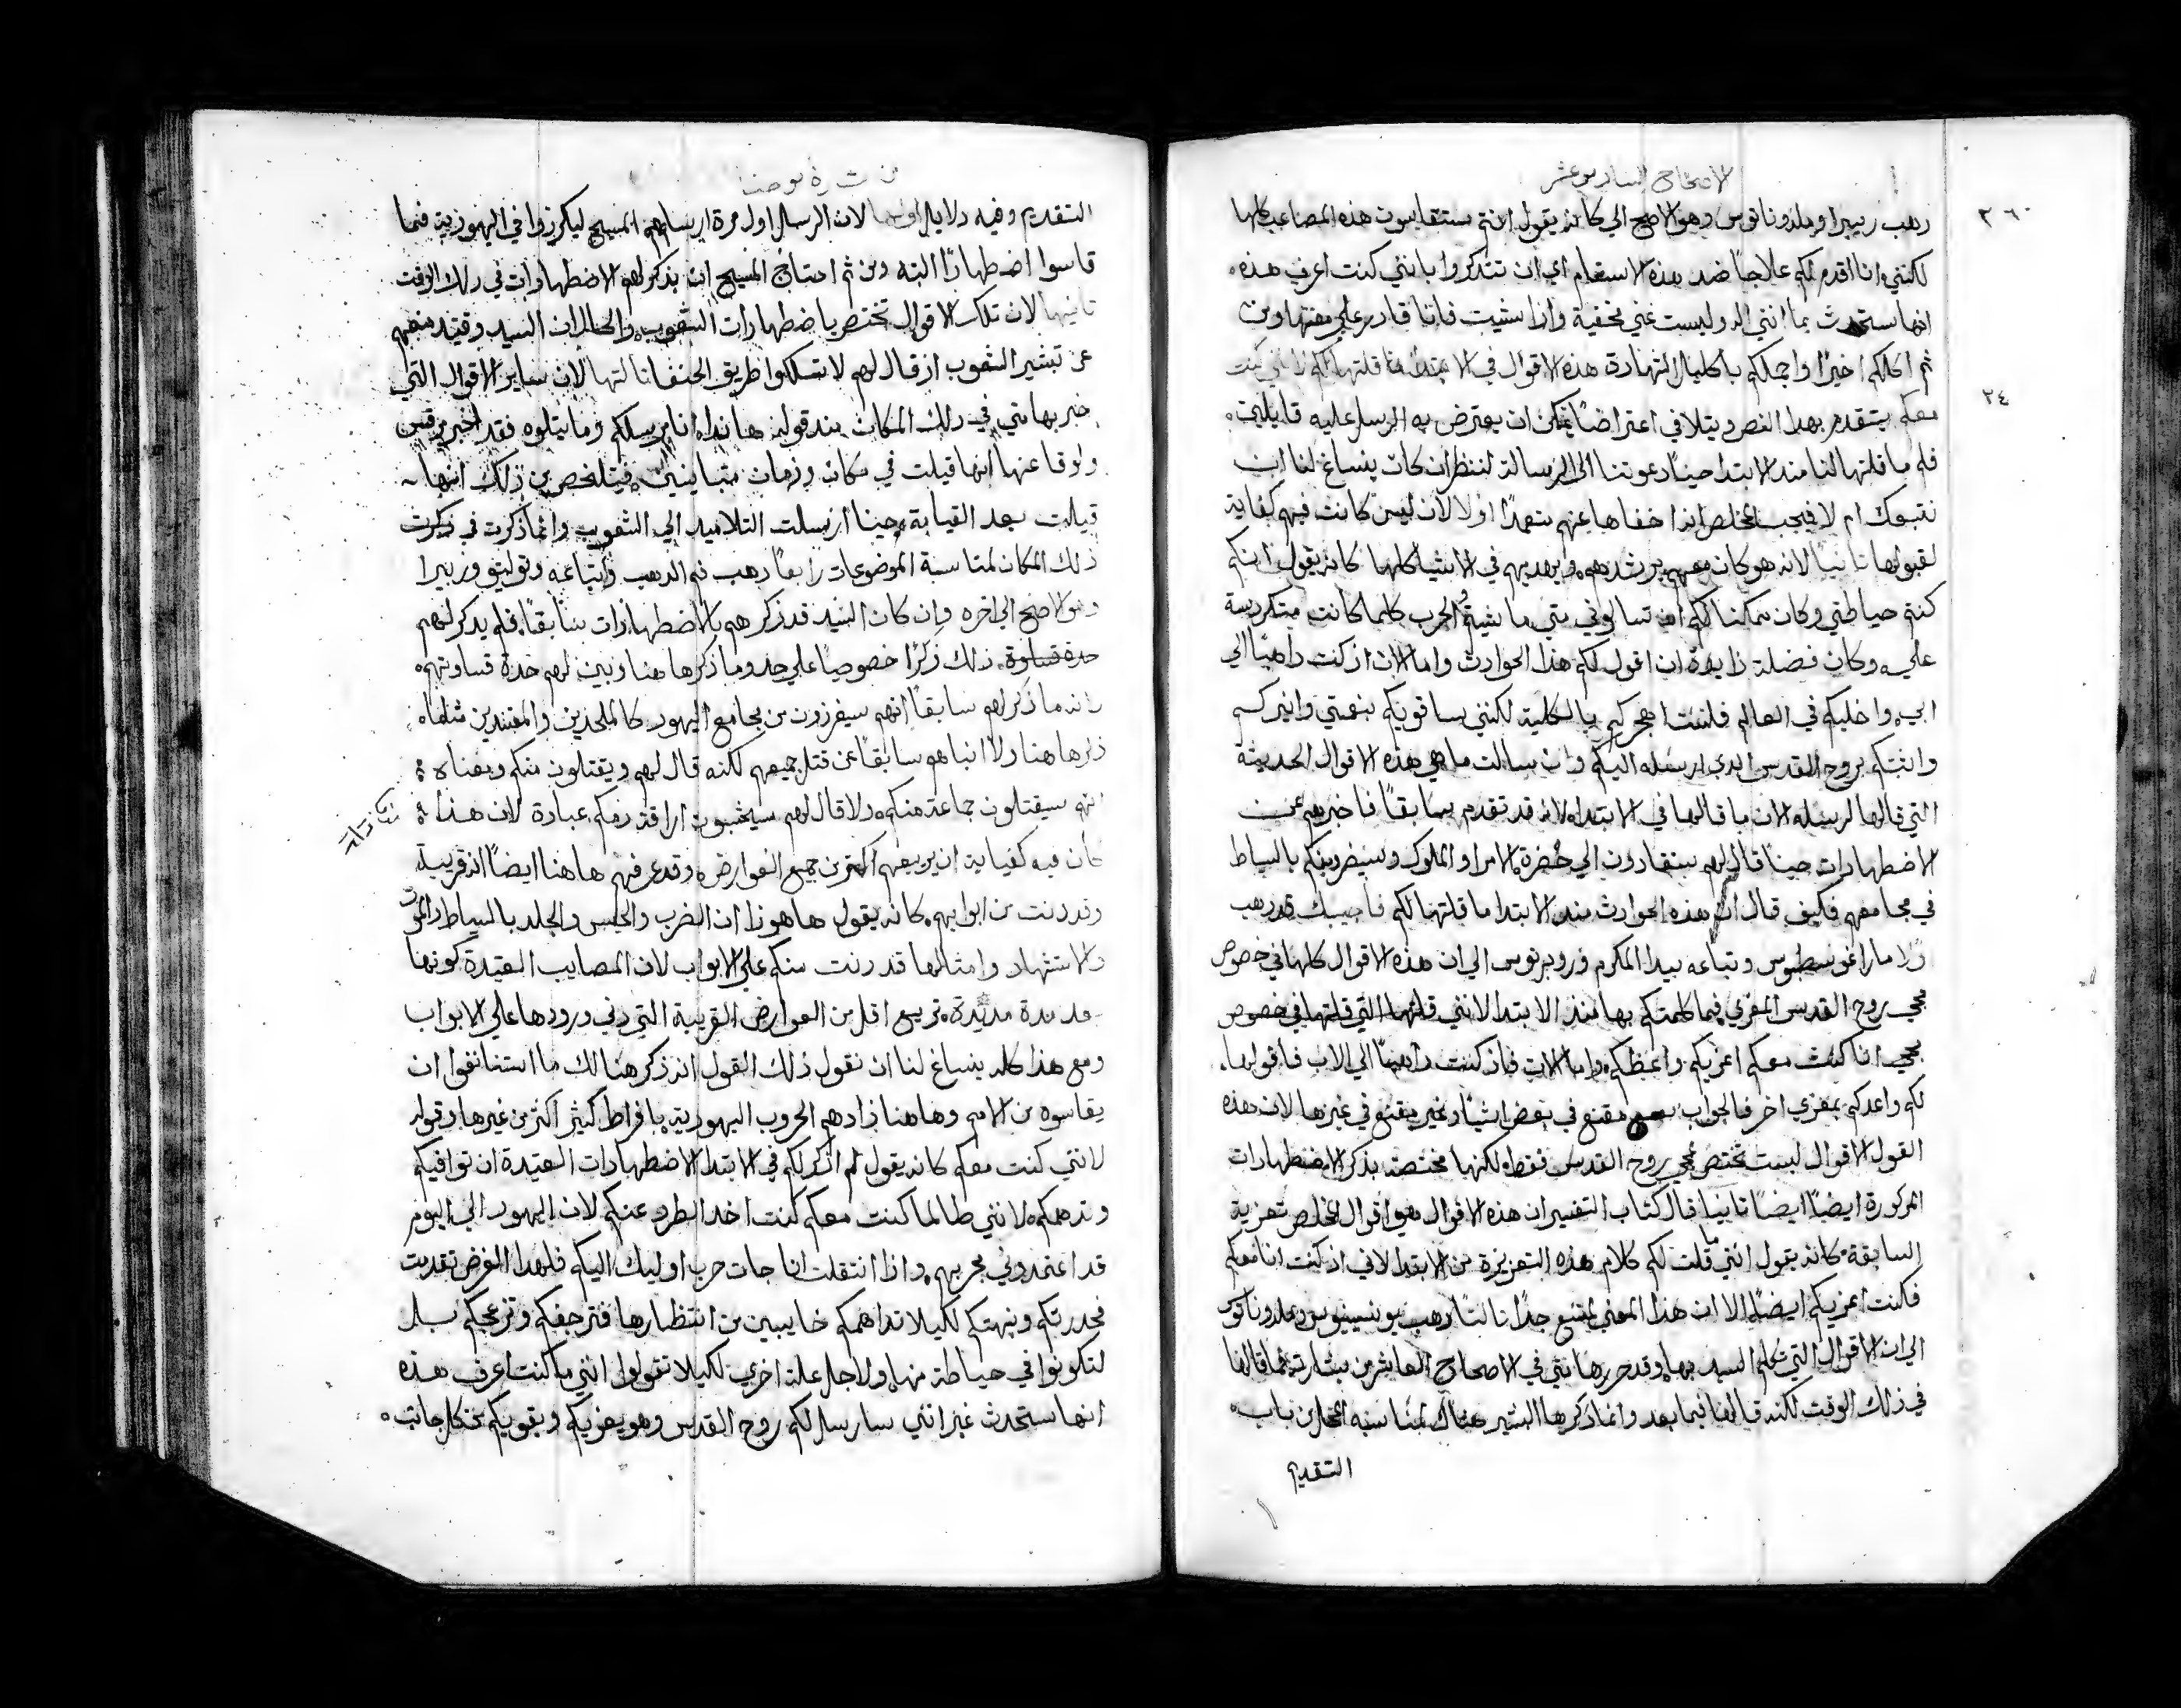 الاصحاح السادس عشر
٢٦٠
ذهب ريبيرا وملدوناتوس وهو الاصح الي كانه يقول انتم ستقاسون هذه المصاعب كلها
لكنني انا اقدم لكم علاجًا ضد هذه الاسقام اي ان تتذكروا بانني كنت اعرف هذه
انها ستحدث بما انني اله وليست عني مخفية واذا شيت فانا قادر علي منعها ومن
ثم اكللكم اخيرًا واجملكم باكليل الشهادة هذه الاقوال في الابتدا ما قلتها لكم لانني كنت
٢٤
معكم يتقدم بهذا النص ويتلافي اعتراضًا يمكن ان يعترض به الرسل عليه قايلين
فلم ما قلتها لنا منذ الابتدا حينا دعوتنا الي الرسالة لننظر ان كان ينساغ لنا ان
نتبعك ام لا فيجب المخلص انه اخفاها عنهم عمدًا اولا لان ليس كانت فيهم كفاية
لقبولها ثانيًا لانه هو كان معهم يرشدهم ويهديهم في الاشيا كلها كانه يقول انكم
كنتم حياطتي وكان ممكنا لكم ان تسالوني متي ما شيتم الحرب كلها كانت متكردسة
علي وكان فضلة زايدة ان اقول لكم هذا الحوادث واما الان اذ كنت ذاهبًا الي
ابي واخليكم في العالم فلست اهجركم بالكلية لكنني ساقويكم بنعمتي وانيركم
واثبتكم بروح القدس الذي ارسله اليكم وان سالت ما هي هذه الاقوال الحديثة
التي قالها لرسله الان ما قالها في الابتدا لانه قد تقدم سابقًا فاخبرهم عن
الاضطهادات حينا قال لهم ستقادون الي حضرة الامرا والملوك وسيضربونكم بالسياط
في مجامعهم فكيف قال ان هذه الحوادث منذ الابتدا ما قلتها لكم فاجيبك قد ذهب
اولا مار اغوسطيوس وتباعه بيدا المكرم وروبرتوس الي ان هذه الاقوال كلها في خصوص
مجي روح القدس المعزي فيما كلمتكم بها منذ الابتدا لانني قلتها التي قلتها في خصوص
مجي انا كنت معكم اعزيكم واعظكم واما الان فاذ كنت ذاهبًا الي الاب فاقولها
لكم واعدكم بمعزي اخر فالجواب مقنع في بعض اشيا وغير مقنع في غيرها لان هذه
القول الاقوال ليست تختص بمجي روح القدس فقط لكنها مختصة بذكر الاضطهادات
المذكورة ايضًا ايضًا ثانيًا قال كتاب التفسير ان هذه الاقوال هي اقوال المخلص تعزية
السابقة كانه يقول انني ما قلت لكم كلام هذه التعزيزة من الابتدا لاني اذ كنت انا معكم
فكنت اعزيكم ايضًا الا ان هذا المعني ممتنع جدًا ثالثًا ذهب يونسينيوس وملدوناتوس
الي ان الاقوال التي تكلم السيد بها وقد حررها متي في الاصحاح العاشر من بشارته ما قالها
في ذلك الوقت لكنه قالها فيما بعد وانما ذكرها البشير هناك لمناسبة المحل من باب
التقديم
بشارة يوحنا
التقديم وفيه دلايل اولها لان الرسل اول مرة ارسلهم المسيح ليكرزوا في اليهودية فما
قاسوا اضطهادًا البته ومن ثم احتاج المسيح ان يذكر لهم الاضطهادات في ذلك الوقت
ثانيها لان تلك الاقوال تختص باضطهادات الشعوب والحال ان السيد وقتيذ منعهم
عن تبشير الشعوب اذ قال لهم لا تسلكوا طريق الحنفا ثالثها لان ساير الاقوال التي
خبر بها متي في ذلك المكان منذ قوله هانذا انا مرسلكم وما يتلوه فقد اخبر مرقس
ولوقا عنها انها قيلت في مكان وزمان متباينين فيتلخص من ذلك انها
قيلت بعد القيامة حينا ارسلت التلاميذ الي الشعوب وانما ذكرت في ذكرت
ذلك المكان لمناسبة الموضوعات رابعًا ذهب فم الذهب واتباعه وتوليتو وريبيرا
وهو الاصح الي اخره وان كان السيد قد ذكرهم بالاضطهادات سابقًا فلم يذكر لهم
حدة قساوة ذلك ذكرًا خصوصيًا علي حدو ما ذكرها هنا وبين لهم حدة قساوتهم
لانه ما ذكر لهم سابقًا انهم سيفرزون من مجامع اليهود كالملحدين والمفسدين مثلما
ذكرها هنا ولا انباهم سابقًا عن قتل جميعهم لكنه قال لهم ويقتلون منكم ومعناه
انهم سيقتلون جماعة منكم ولا قال لهم سيحسبون اراقة دمكم عبادة لان هذا
كان فيه كفاية ان يريعهم اكثر من جميع العوارض وقد عرفهم هاهنا ايضًا انه قريبة
وقد دنت من ابوابهم كانه يقول ها هوذا ان الضرب والحبس والجلد بالسياط والموت
والاستشهاد وامثالها قد دنت منكم علي الابواب لان المصايب العتيدة كونها
بعد مدة مديدة تريع اقل من العوارض القريبة التي دني ورودها علي الابواب
ومع هذا كله ينساغ لنا ان نقول ذلك القول انه ذكر هنالك ما استانفوا ان
يقاسوه من الامم وهاهنا زادهم الحروب اليهودية بافراط كثير اكثر من غيرها وقوله
لانني كنت معكم كانه يقول لم اذكر لكم في الابتدا الاضطهادات العتيدة ان توافيكم
وتدهمكم لانني طالما كنت معكم كنت اخد الطرد عنكم لان اليهود الي اليوم
قد اعتمدوني بحربهم واذا انتقلت انا جات حرب اوليك اليكم فلهذا الغرض تقدمت
فحذرتكم ونبهتكم لكيلا تداهمكم خايبين من انتظارها فترجفكم وتزعجكم بل
لتكونوا في حياطة منها ولاجل علة اخري لكيلا تقولوا انني ما كنت اعرف هذه
انها ستحدث غير انني سارسل لكم روح القدس وهو يعزيكم ويقويكم بكل جانب